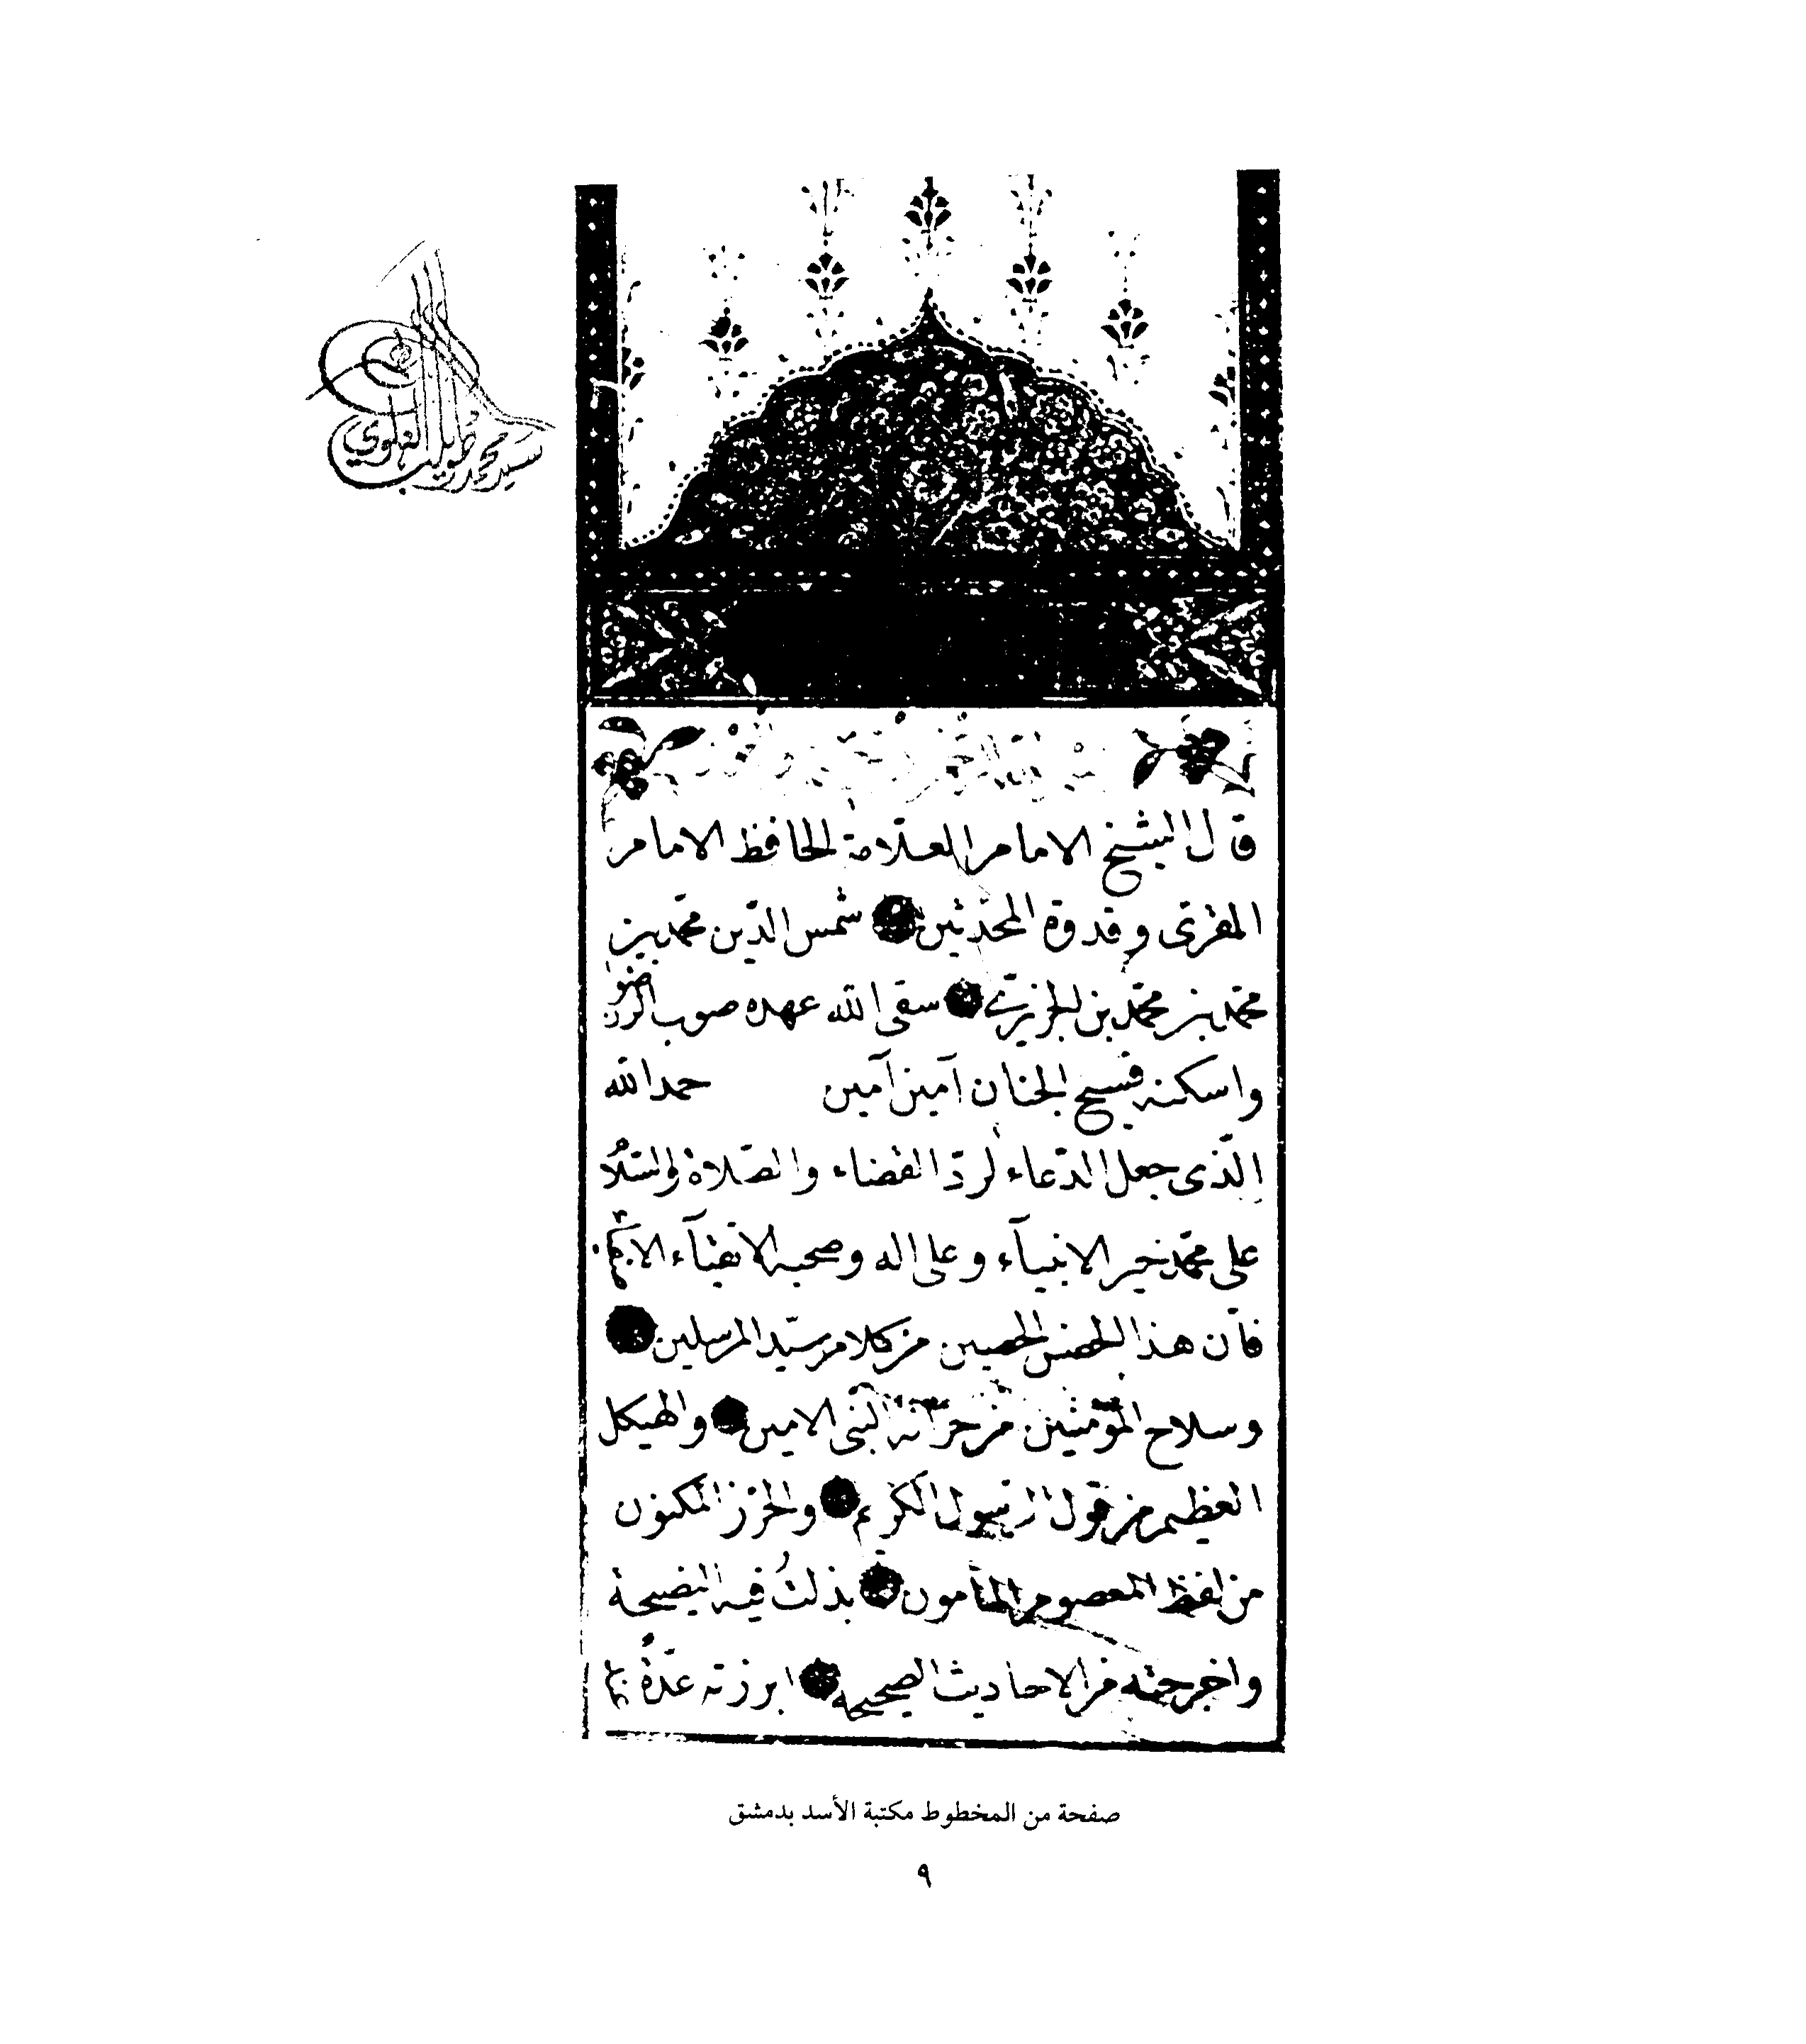 سيد محمد العلوي
بسم الله الرحمن الرحيم
قال الشيخ الامام العلامة الحافظ الامام
المقرى وقدوة المحدثين شمس الدين محمد بن
محمد بن محمد بن الجزرى سقى الله عهده صوب الرضوان
واسكنه فسيح الجنان آمين آمين حمد الله
الذى جعل الدعاء لرد القضاء والصلاة والسلام
على محمد خير الانبياء وعلى اله وصحبه الاتقياء
فان هذا الحصن الحصين من كلام سيد المرسلين
وسلاح المؤمنين من خزانة النبى الامين والهيكل
العظيم من قول الرسول الكريم والحرز المكنون
من لفظ المعصوم المأمون بذلت فيه النصيحة
واخرجته من الاحاديث الصحيحة ابرزته عدة
صفحة من المخطوط مكتبة الأسد بدمشق
٩